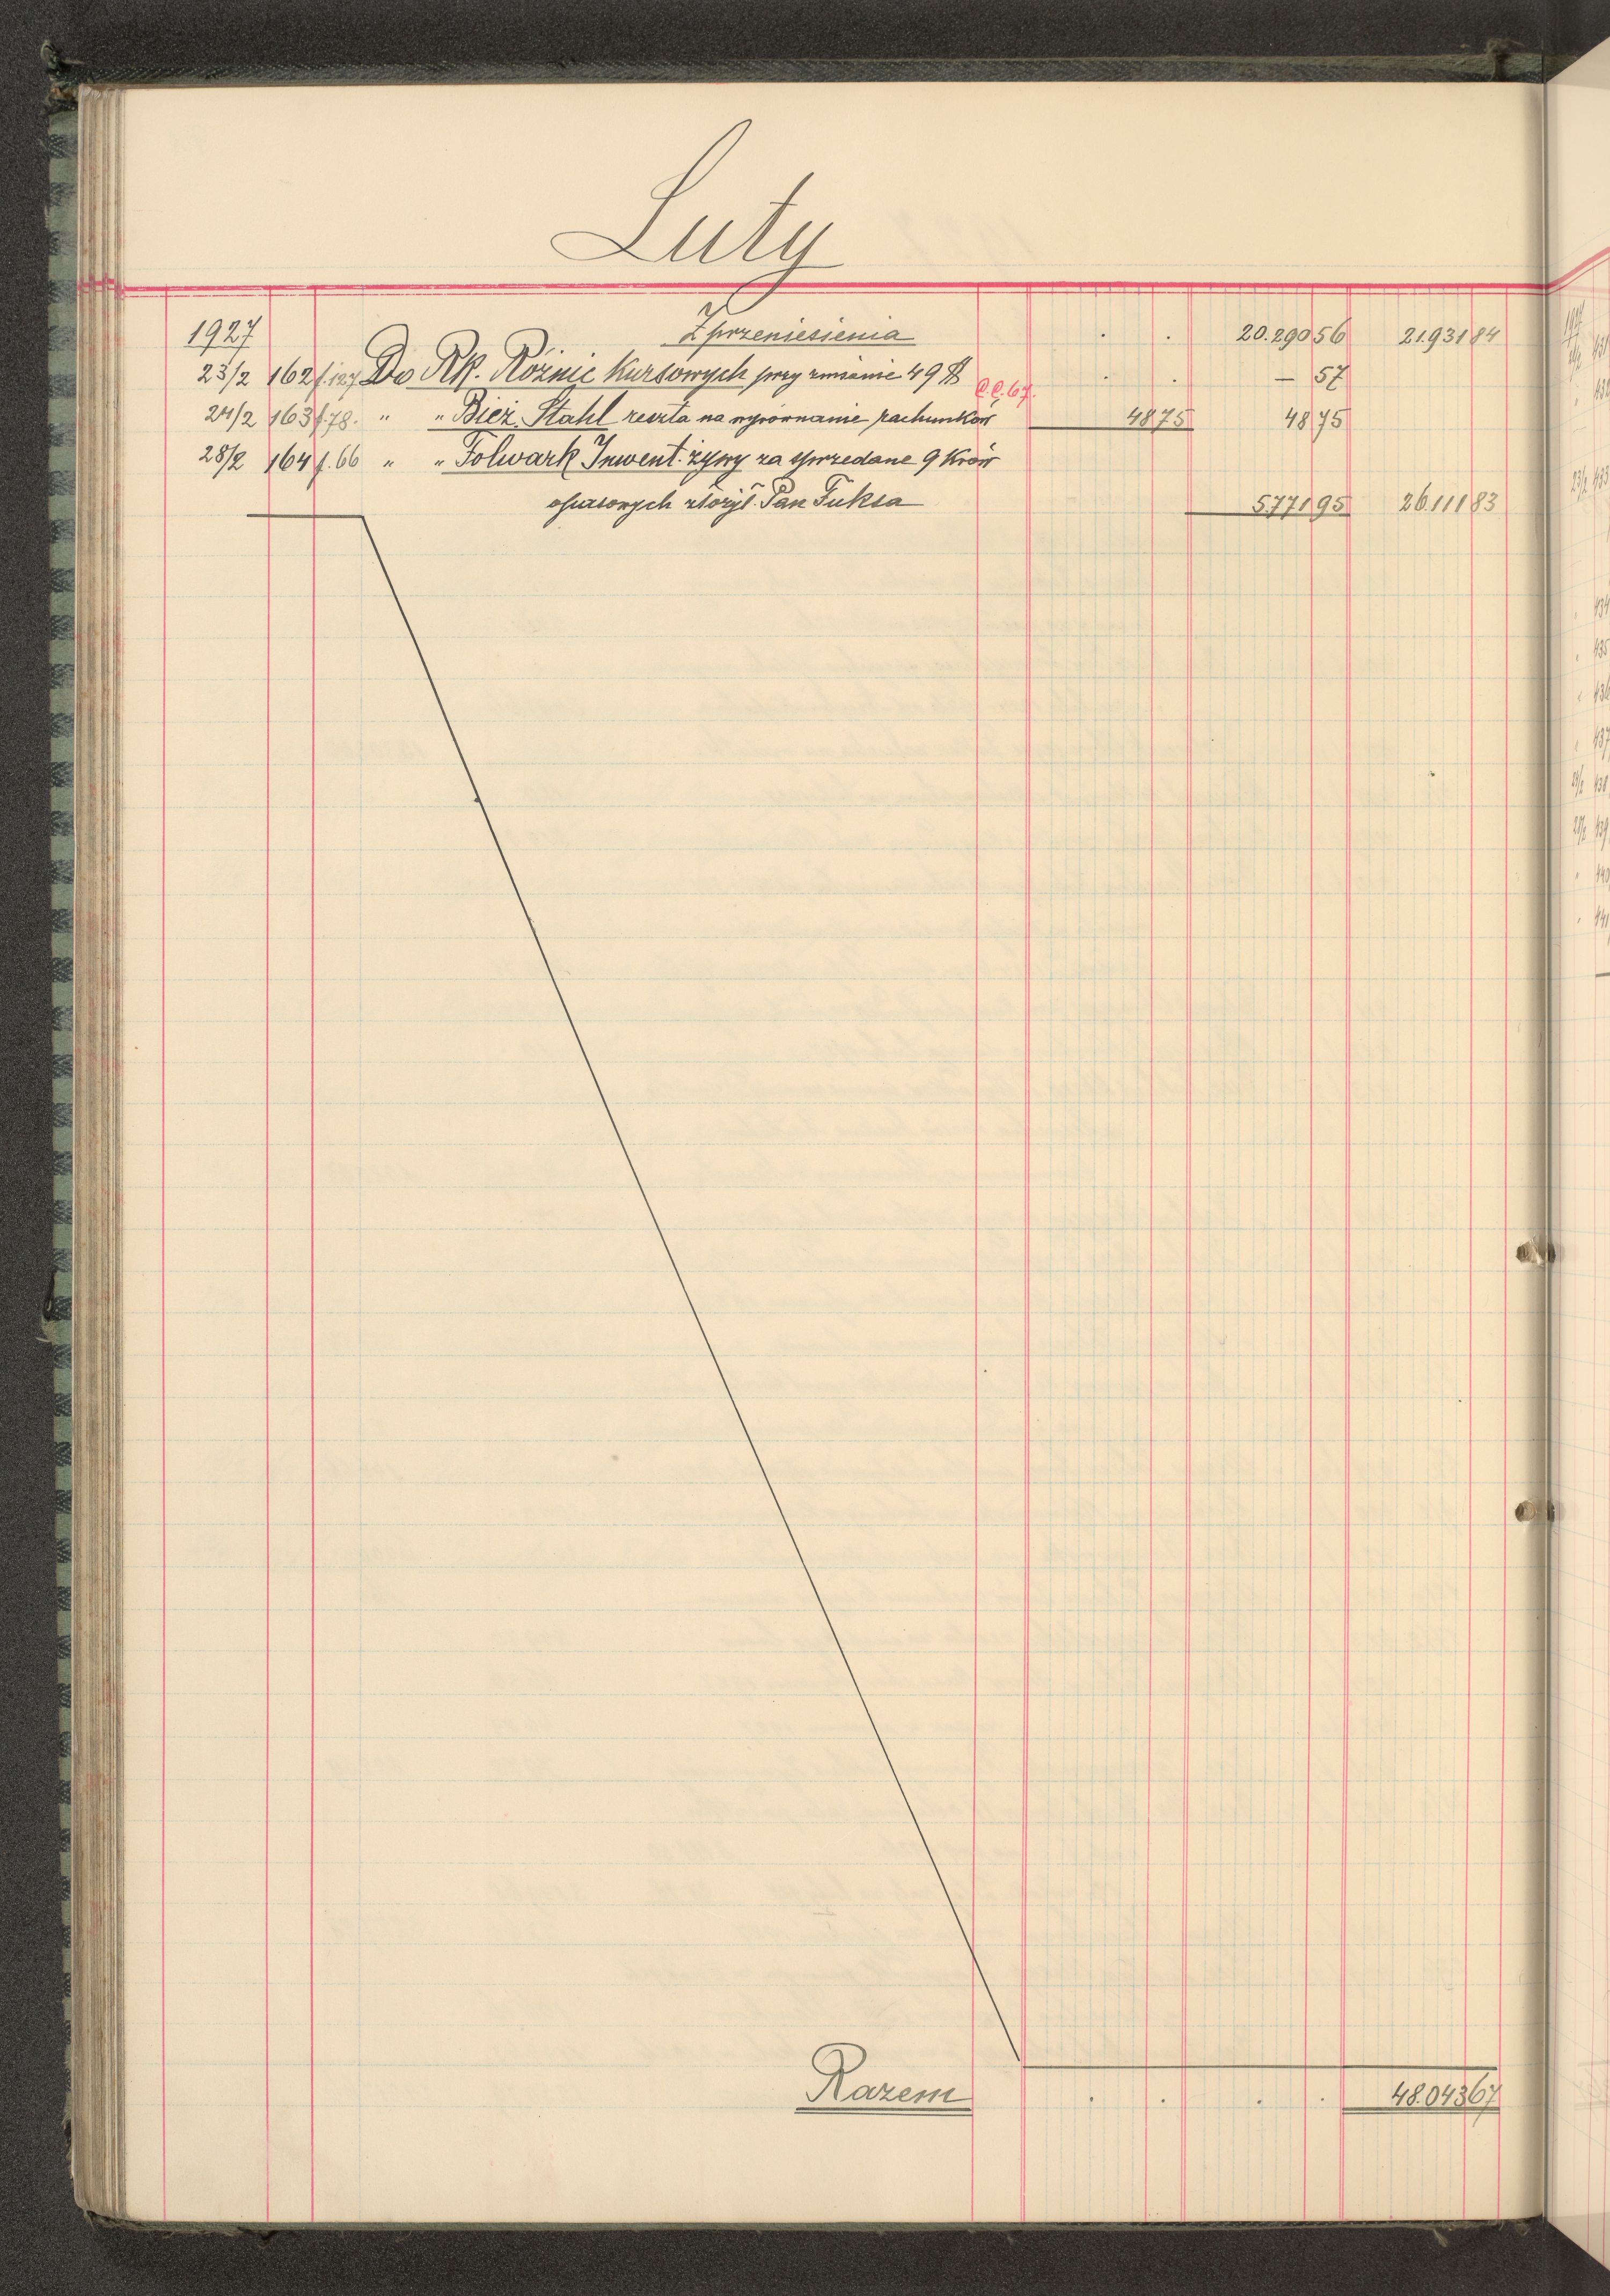 Luty
1927 Z przeniesienia . . 20.290 56 21.931 84
23/2 162 f.127 Do Rk. Różnic Kursowych przy zmianie 49 $ C.C. 67. . . — 57
24/2 163 f.78. " " Bież. Stahl reszta na wyrównanie rachunków 48 75 48 75
28/2 164 f.66 " " Folwark Inwent. żywy za sprzedane 9 krów
opasowych złożył Pan Fuksa 5.771 95 26.111 83
Razem . . . . 48.043 67